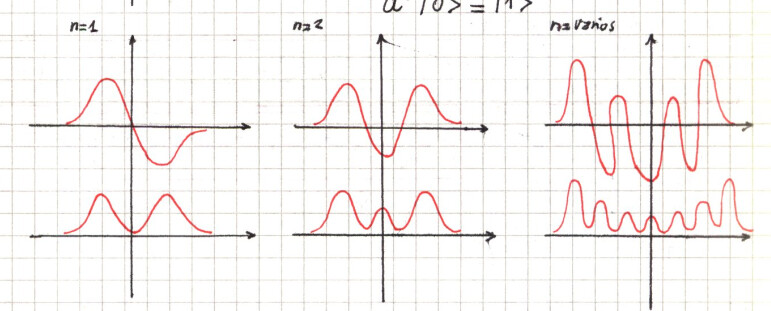 a |0> = |1>
n=1
n=2
n=varios